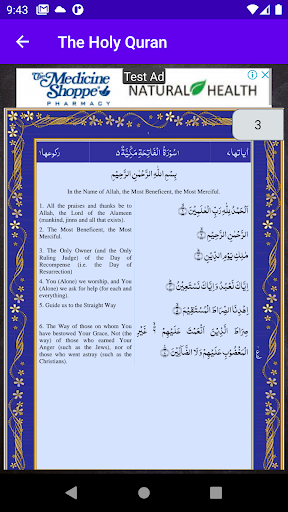 9:43
The Holy Quran
The Medicine Shoppe
PHARMACY
Test Ad
NATURAL HEALTH
3
اياتها٧
سُوْرَةُ الْفَاتِحَةِ مَكِّيَّةٌ ٥
ركوعها١
بِسْمِ اللّٰهِ الرَّحْمٰنِ الرَّحِيْمِ
In the Name of Allah, the Most Beneficent, the Most Merciful.
1. All the praises and thanks be to
Allah, the Lord of the Alameen
(mankind, jinns and all that exists).
2. The Most Beneficent, the Most
Merciful.
3. The Only Owner (and the Only
Ruling Judge) of the Day of
Recompense (i.e. the Day of
Resurrection)
4. You (Alone) we worship, and You
(Alone) we ask for help (for each and
everything).
5. Guide us to the Straight Way
6. The Way of those on whom You
have bestowed Your Grace, Not (the
way) of those who earned Your
Anger (such as the Jews), nor of
those who went astray (such as the
Christians).
اَلْحَمْدُ لِلّٰهِ رَبِّ الْعٰلَمِيْنَ ﴿١﴾
الرَّحْمٰنِ الرَّحِيْمِ ﴿٢﴾
مٰلِكِ يَوْمِ الدِّيْنِ ﴿٣﴾
اِيَّاكَ نَعْبُدُ وَ اِيَّاكَ نَسْتَعِيْنُ ﴿٤﴾
اِهْدِنَا الصِّرَاطَ الْمُسْتَقِيْمَ ﴿٥﴾
صِرَاطَ الَّذِيْنَ اَنْعَمْتَ عَلَيْهِمْ ﴿٦﴾ غَيْرِ
الْمَغْضُوْبِ عَلَيْهِمْ وَلَا الضَّآلِّيْنَ ﴿٧﴾